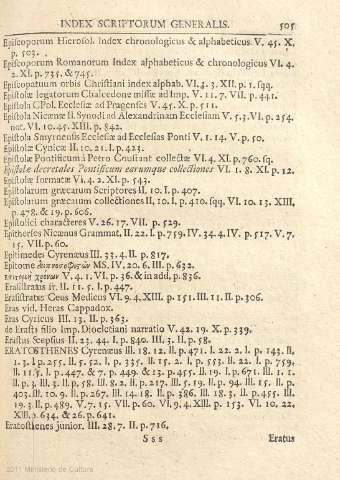 INDEX SCRIPTORUM GENERALIS. 505
Episcoporum Hierosol. Index chronologicus & alphabeticus V. 45. X.
p. 503.
Episcoporum Romanorum Index alphabeticus & chronologicus VI. 4.
2. XI. p. 735. & 745.
Episcopatuum orbis Christiani index alphab. VI. 4. 3. XII. p. 1. sqq.
Epistolæ legatorum Chalcedone missæ ad Imp. V. 11. 7. VII. p. 441.
Epistola CPol. Ecclesiæ ad Pragenses V. 45. X. p. 511.
Epistola Nicænæ II. Synodi ad Alexandrinam Ecclesiam V. 5. 3. VI. p. 254.
not. VI. 10. 45. XIII. p. 842.
Epistola Smyrnensis Ecclesiæ ad Ecclesias Ponti V. 1. 14. V. p. 50.
Epistolæ Cynicæ II. 10. 21. I. p. 423.
Epistolæ Pontificum à Petro Coustant collectæ VI. 4. XI. p. 760. sq.
Epistolæ decretales Pontificum earumque collectiones VI. 1. 8. XI. p. 12.
Epistolæ formatæ VI. 4. 2. XI. p. 543.
Epistolarum græcarum Scriptores II. 10. I. p. 407.
Epistolarum græcarum collectiones II, 10. I. p. 410. sqq. VI. 10. 13. XIII,
p. 478. & 19. p. 606.
Epistolici characteres V. 26. 17. VII. p. 529.
Epitherses Nicænus Grammat. II. 22. I. p. 759. IV. 34. 4. IV. p. 517. V. 7.
15. VII. p. 60.
Epitimedes Cyrenæus III. 33. 4. II. p. 817.
Epitome MS. IV. 20. 6. III. p. 632.
V. 4. 1. VI. p. 36. & in add. p. 836.
Erasistratus fr. II. 11. 5. I. p. 447.
Erasistratus Ceus Medicus VI. 9. 4. XIII. p. 151. III. 11. II. p. 306.
Eras vid. Heras Cappadox.
Eras Cyricus III. 13. II. p. 363.
de Erasti filio Imp. Diocletiani narratio V. 42. 19. X. p. 339.
Erastus Scepsius II. 23. 44. I. p. 840. III. 3. II. p. 58.
ERATOSTHENES Cyrenæus III. 18. 12. II. p. 471. I. 22. 2. I. p. 143. II,
1. 3. I. p. 255. II. 5. 52. I. p. 335. II. 15. 2. I. p. 553. II. 22. I. p. 759,
II. 11. 5. I. p. 447. & 7. p. 449. & 13. p. 455. II. 19. I. p. 671. III. 1. 1.
II. p. 3. III. 3. II. p. 58. III. 8. 2. II. p. 217. III. 5. 19. II. p. 94. III. 15. II. p.
403. III. 10. 9. II. p. 267. III. 14. 18. II. p. 386. III. 18. 3. II. p. 455. III.
19. 3. II. p. 489. V. 7. 15. VII. p. 60. VI. 9. 4. XIII. p. 153. VI. 10. 22.
XIII. p. 634. & 26. p. 641.
Eratosthenes junior. III. 28. 7. II. p. 716.
S s s Eratus
2011 Ministerio de Cultura